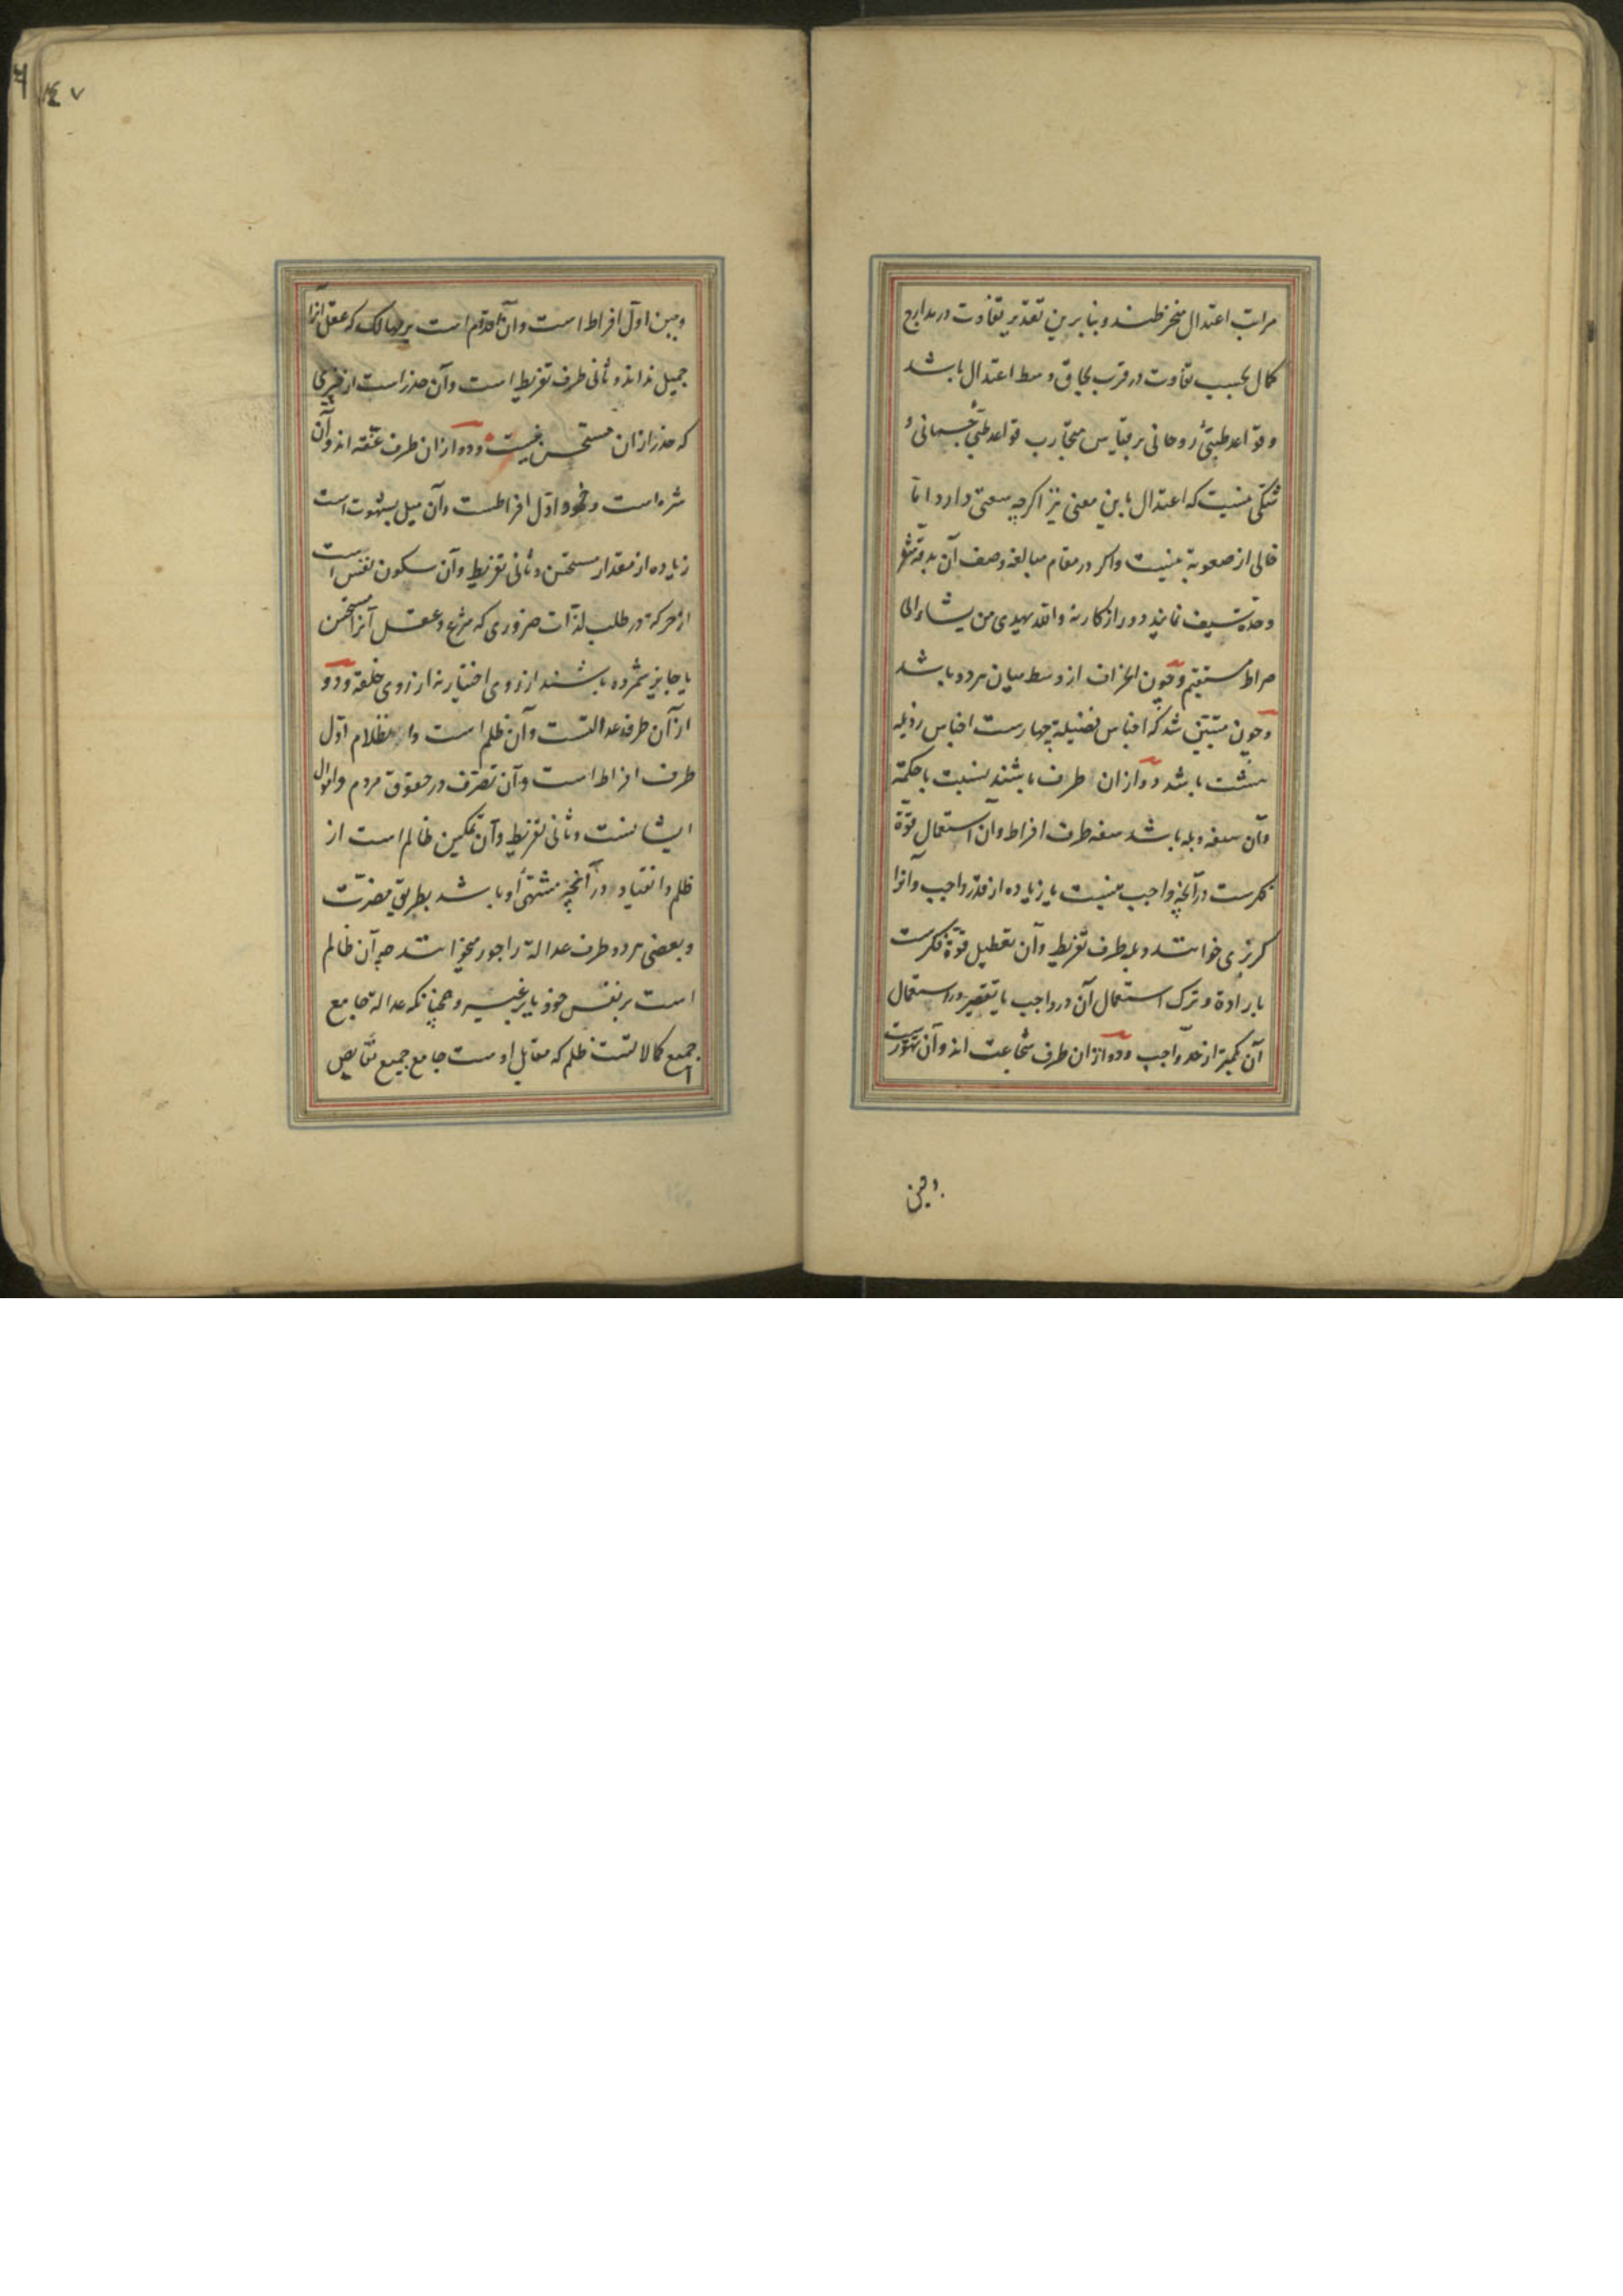 مراتب اعتدال منخرطند و بنا برین تقدیر تفاوت در مدارج
کمال بحسب تفاوت در قرب بحاق وسط اعتدال باشد
و قواعد طب روحانی بر قیاس قواعد طب جسمانی و
شکی نیست که اعتدال باین معنی نیز اگرچه سعتی دارد اما
خالی از صعوبة نیست و اگر در مقام مبالغه وصف آن بدقة شعر
و حدة سیف نمایند دور از کار نه والله یهدی من یشاء الی
صراط مستقیم و چون انحراف از وسط میان هر دو باشد
و چون مبین شد که اجناس فضیلة چهارست اجناس رذیله
هشت باشد دو ازان طرف باشند بنسبت با حکمة
و آن سفه و بله باشد سفه طرف افراط و آن استعمال قوة
فکرست در آنچه واجب نیست یا زیاده از قدر واجب و آنرا
کربزی خوانند و بله طرف تفریط و آن تعطیل قوة فکرست
بارادة و ترک استعمال آن در واجب یا تقصیر در استعمال
آن کمتر از حد واجب و دو ازان طرف شجاعت اند و آن تهورست
و جبن
٤٧
و جبن اول افراط است و آن اقدام است بر مهالک که عقل آنرا
جمیل نداند و ثانی طرف تفریط است و آن حذر است از چیزی
که حذر ازان مستحسن نیست و دو ازان طرف عفة اند و آن
شره است و خمود اول افراطست و آن میل بشهوت است
زیاده از مقدار مستحسن و ثانی تفریط و آن سکون نفس است
از حرکة در طلب لذات ضروری که شرع و عقل آنرا مستحسن
یا جایز شمرده باشند از روی اختیار نه از روی خلقة و دو
از آن طرف عدالتست و آن ظلم است و انظلام اول
طرف افراط است و آن تصرف در حقوق مردم و اموال
ایشانست و ثانی تفریط و آن تمکین ظالم است از
ظلم و انقیاد در آنچه مشتهی او باشد بطریق مضرت
و بعضی هر دو طرف عدالة را جور میخوانند چه آن ظالم
است بر نفس خود یا بر غیر و همچنانکه عدالة جامع
جمیع کمالاتست ظلم که مقابل اوست جامع جمیع نقایص